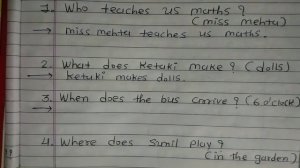 1. Who teaches us maths ?
(miss mehta)
→ miss mehta teaches us maths.
2. What does Ketaki make ? (dolls)
→ Ketaki makes dolls.
3. When does the bus arrive ? (6.o'clock)
→
4. Where does Sunil Play ?
(in the garden)